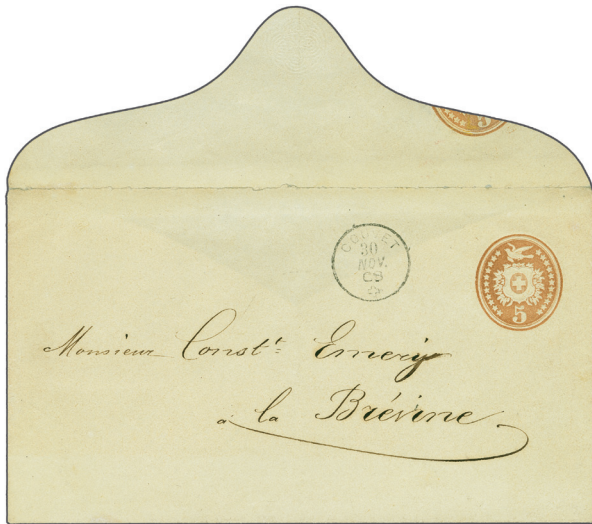 5
COUVET
30
NOV.
68
5
Monsieur Const.t Emery
à la Brévine